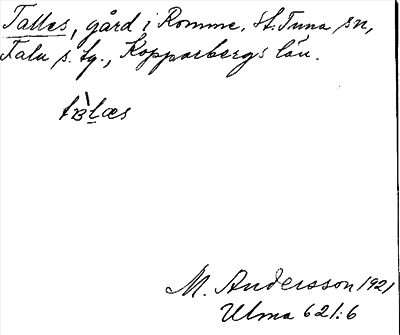 Talles, gård i Romme, St. Tuna sn,
Falu s. tg., Kopparbergs län.
M. Andersson 1921
Ulma 621:6